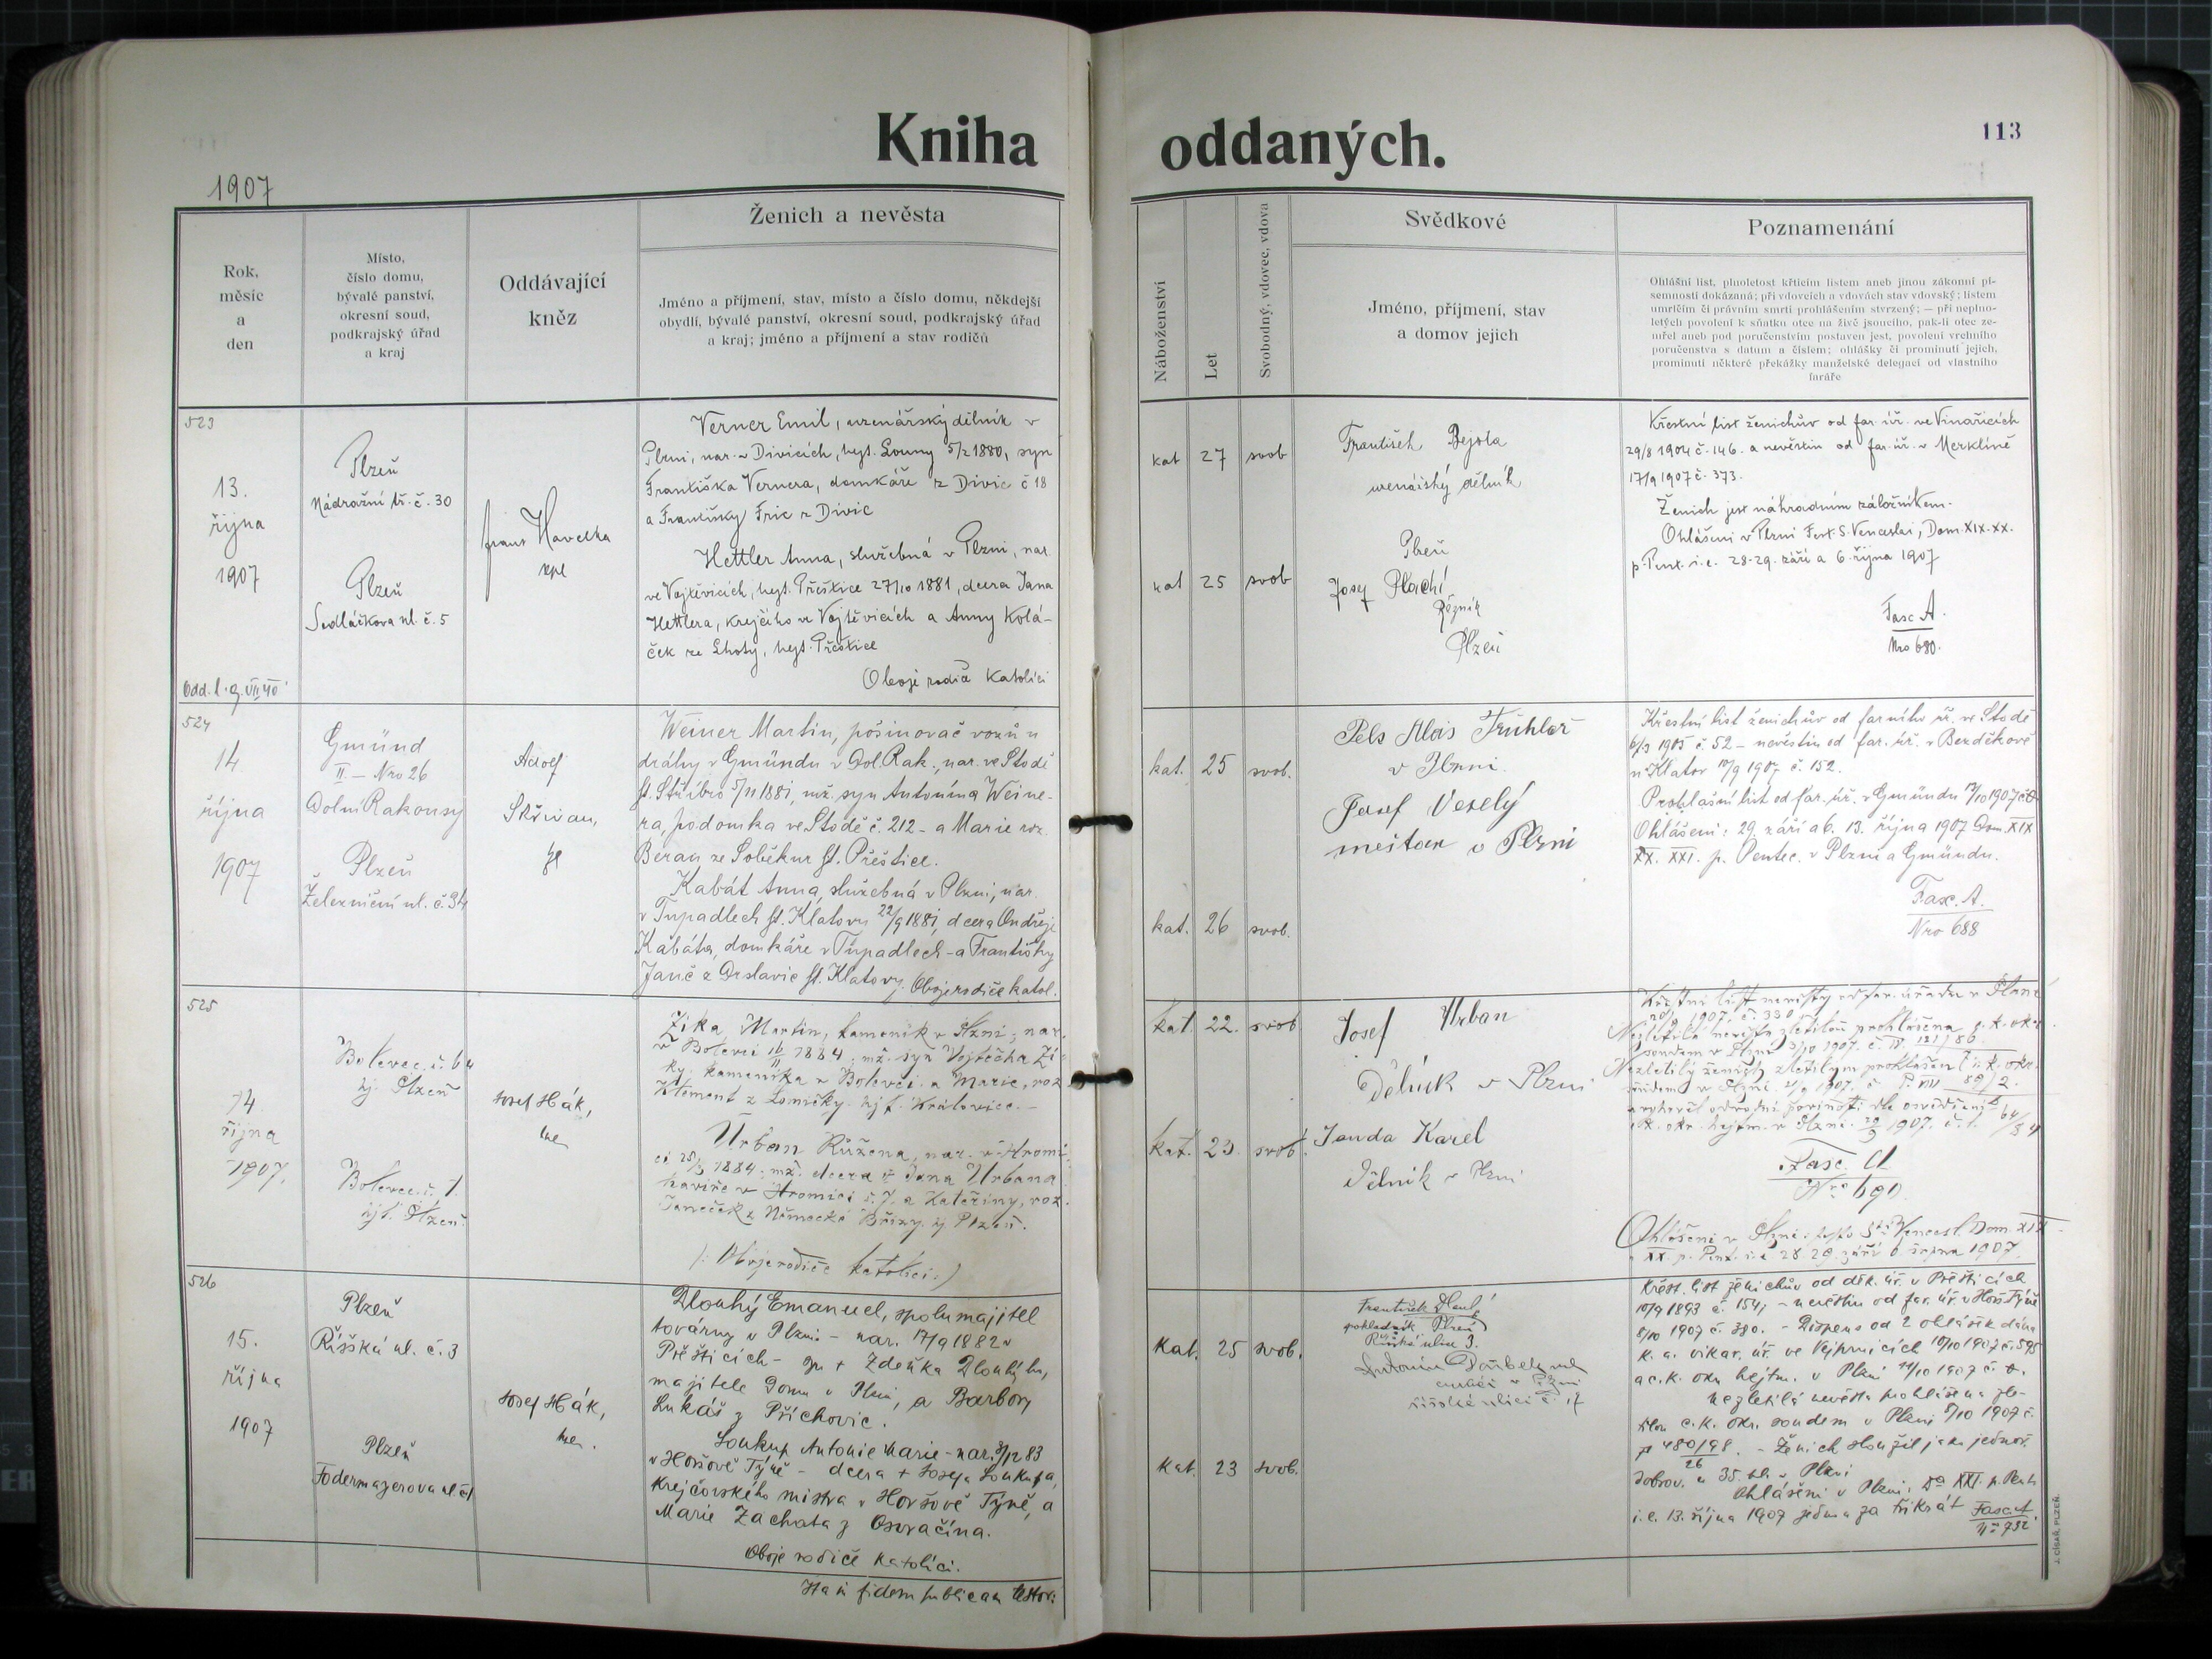 Kniha oddaných.
113
1907
Rok,
měsíc
a
den
Místo,
číslo domu,
bývalé panství,
okresní soud,
podkrajský úřad
a kraj
Oddávající
kněz
Ženich a nevěsta
Jméno a příjmení, stav, místo a číslo domu, někdejší
obydlí, bývalé panství, okresní soud, podkrajský úřad
a kraj; jméno a příjmení a stav rodičů
Náboženství
Let
Svobodný, vdovec, vdova
Svědkové
Jméno, příjmení, stav
a domov jejich
Poznamenání
Ohlášní list, plnoletost křticím listem aneb jinou zákonní pí-
semností dokázaná; při vdovcích a vdovách stav vdovský; listem
umrlčím či právním smrti prohlášením stvrzený; — při neplno-
letých povolení k sňatku otce na živě jsoucího, pak-li otec ze-
mřel aneb pod poručenstvím postaven jest, povolení vrchního
poručenstva s datum a číslem; ohlášky či prominutí jejich,
prominutí některé překážky manželské delegací od vlastního
faráře
523
13.
října
1907
Odd. l. 9. VII. 40
Plzeň
Nádražní tř. č. 30
Plzeň
Sedláčkova ul. č. 5
Havelka
Verner Emil, uzenářský dělník v
Plzni, nar. v Divicích, hejt. Louny 5/2 1880, syn
Františka Vernera, domkáře z Divic č 18
a Františky Fric z Divic
Hettler Anna, služebná v Plzni, nar.
ve Vojtěvicích, hejt. Přeštice 27/10 1881, dcera Jana
Hettlera, krejčího ve Vojtěvicích a Anny Kolá-
ček ze Lhoty, hejt. Přeštice
Oboje rodiče katolíci
kat 27 svob
kat 25 svob
František Bejola
uzenářský dělník
Plzeň
Josef Plachí
Řezník
Plzeň
Křestní list ženichův od far. úř. ve Vinařicích
29/8 1904 č. 146. a nevěstin od far. úř. v Merklíně
17/9 1907 č. 373.
Ženich jest náhradním záložníkem.
Ohlášeni v Plzni Fest. S. Venceslai, Dom. XIX. XX.
p. Pent. i. e. 28. 29. září a 6. října 1907
Fasc A.
Nro 680.
524
14
října
1907
Gmünd
II. — Nro 26
Dolní Rakousy
Plzeň
Železniční ul. č. 34
Adolf
Skřivan,
Weiner Martin, pošinovač vozů u
dráhy v Gmündu v Dol. Rak., nar. ve Stodě
ht. Stříbro 5/11 1881, mž. syn Antonína Weine-
ra, podomka ve Stodě č. 212 - a Marie roz.
Beran ze Soběkur ht. Přeštice.
Kabát Anna, služebná v Plzni, nar.
v Tupadlech ht. Klatovy 22/9 1881, dcera Ondřeje
Kabáta, domkáře v Tupadlech - a Františky
Janč z Drslavic ht. Klatovy. Oboje rodiče katol.
kat. 25 svob.
kat. 26 svob.
Pels Alois Truhlář
v Plzni.
Josef Veselý
meštan v Plzni
Křestní list ženichův od farního úř. ve Stodě
6/3 1905 č. 52 - nevěstin od far. úř. v Bezděkově
u Klatov 10/9 1907 č. 152.
Prohlašní list od far. úř. v Gmündu 13/10 1907 č.
Ohlášeni: 29. září a 6. 13. října 1907 Dom. XIX
XX. XXI. p. Pentec. v Plzni a Gmündu.
Fasc. A.
Nro 688
525
14
října
1907.
Bolevec č. 64
hj. Plzeň
Bolevec č. 1.
hjt. Plzeň.
Josef Hák,
Zíka Martin, kameník v Plzni; nar.
v Bolevci 16/II 1884: mž. syn Vojtěcha Zí-
ky, kameníka z Bolevci a Marie, roz.
Kliment z Lomičky hjt. Kralovice. -
Urban Růžena, nar. v Hromi-
ci 25/3 1884: mž. dcera Jana Urbana
havíře v Hromici č. 7. a Kateřiny, roz.
Janeček z Německé Břízy hj Plzeň.
/: Oboje rodiče katolíci. :/
kat. 22. svob
kat. 23 svob.
Josef Urban
Dělník v Plzni
Janda Karel
Dělník v Plzni
Křestní list nevěsty od far. úřadu v Plané
1907. č. 330
Nezletilá nevěsta zletilou prohlášena c. k. okr.
soudem v Plzni 3/10 1907. č.
Nezletilý ženich zletilým prohlášen c. k. okr.
soudem v Plzni. 1907. č. P. VIII 89/2.
a. k. okr. hejtm. v Plzni. 1907. č.
Fasc. A
Nro 690.
Ohlášeni v Plzni: festo Sti Vencesl. Dom. XIX
XX. p. Pent. i. e. 28 29. září 6 října 1907.
526
15.
října
1907
Plzeň
Říšská ul. č. 3
Plzeň
Fodermayerova ul. č 1
Josef Hák,
Dlouhý Emanuel, spolumajitel
továrny v Plzni - nar. 17/9 1882 v
Přešticích - syn + Zdeňka Dlouhýho,
majitele Domu v Plzni, a Barbory
Lukáš z Příchovic.
Soukup Antonie Marie - nar. 3/12 83
v Horšově Týně - dcera + Josefa Soukupa,
Krejčovského mistra v Horšově Týně, a
Marie Zachata z Osvračína.
Oboje rodiče katolíci.
Ita in fidem publicam testor:
Kat. 25 svob.
Kat. 23 svob.
František Dlouhý
pokladník Plzeň
Říšská ulice 3.
Antonín
v Plzni
říšské ulici č. 17
Křest. list ženichův od děk. úř. v Přešticích
10/9 1893 č. 154; - nevěstin od far. úř. v Horš. Týně
8/10 1907 č. 380. - Dispens od 2 ohlášek dána
k. a. vikar. úř. ve Vejprnicích 10/10 1907 č. 595
a c. k. okr. hejtm. v Plzni 14/10 1907 č.
nezletilá nevěsta prohlášena zle-
tilou c. k. okr. soudem v Plzni 5/10 1907 č.
480/98. - Ženich sloužil jako jednor.
dobrov. u 35. v Plzni
Ohlášeni v Plzni, Da XXI. p. Pent.
i. e. 13. října 1907 jednou za třikrát Fasc A
Nro 732.
J. CÍSAŘ, PLZEŇ.